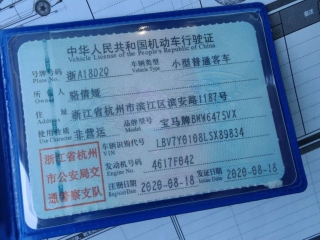 中华人民共和国机动车行驶证
Vehicle License of the People's Republic of China
号牌号码 浙A18D2Q 车辆类型 小型普通客车
Plate No.
所有人 骆倩媛
Owner
住址 浙江省杭州市滨江区滨安路1187号
Address
使用性质 非营运 品牌型号 宝马牌BMW6475VX
Use Character Model
浙江省杭州市公安局交通警察支队
车辆识别代号 LBV7Y0108LSX89834
VIN
发动机号码 4617F042
Engine No.
注册日期 2020-08-18 发证日期 2020-08-18
Register Date Issue Date